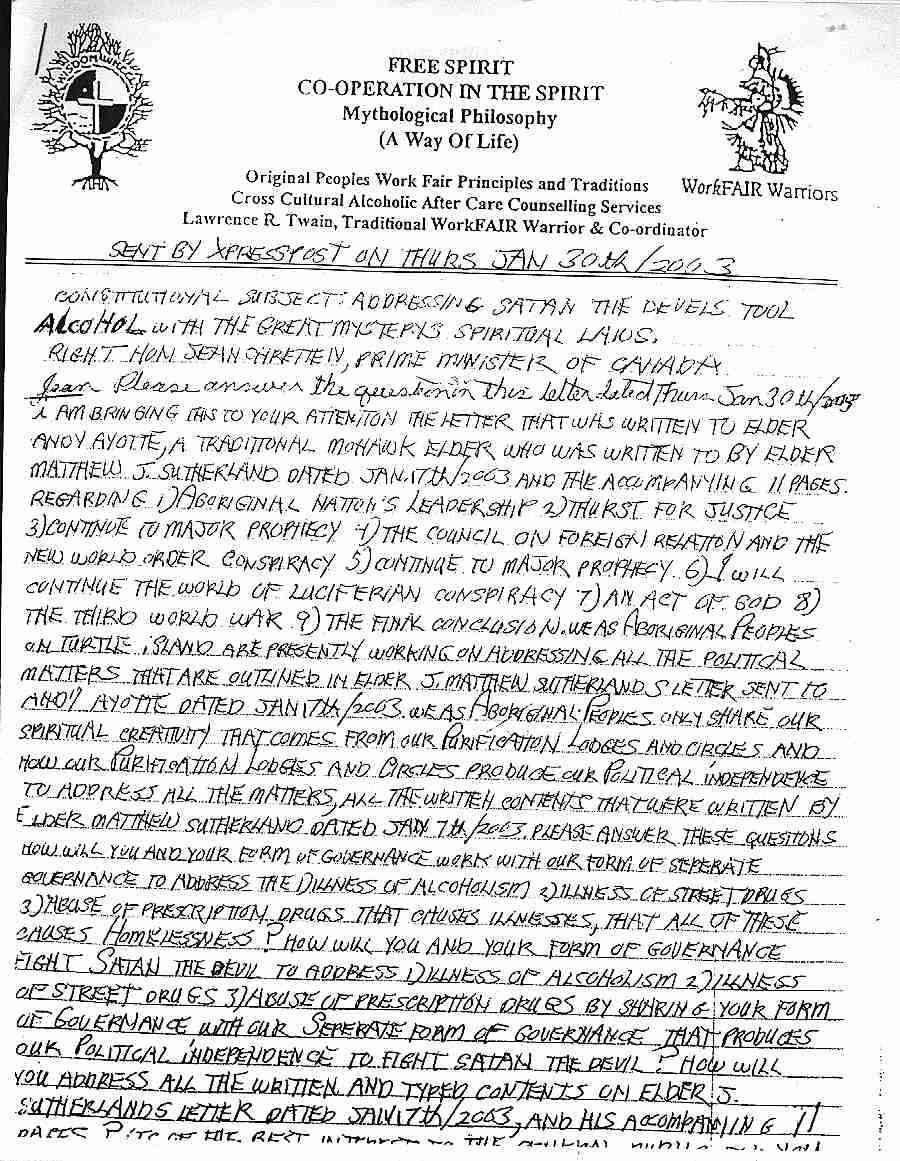 WISDOM WHEEL
FREE SPIRIT
CO-OPERATION IN THE SPIRIT
Mythological Philosophy
(A Way Of Life)
Original Peoples Work Fair Principles and Traditions
WorkFAIR Warriors
Cross Cultural Alcoholic After Care Counselling Services
Lawrence R. Twain, Traditional WorkFAIR Warrior & Co-ordinator
SENT BY XPRESSPOST ON THURS JAN 30th/2003
CONSTITUTIONAL SUBJECT: ADDRESSING SATAN THE DEVELS TOOL
ALCOHOL WITH THE GREAT MYSTERYS SPIRITUAL LAWS.
RIGHT HON JEAN CHRETIEN, PRIME MINISTER OF CANADA
Jean Please answer the question in this letter dated Thurs Jan 30th/2003
I AM BRINGING THIS TO YOUR ATTENTION THE LETTER THAT WAS WRITTEN TO ELDER
ANDY AYOTTE, A TRADITIONAL MOHAWK ELDER WHO WAS WRITTEN TO BY ELDER
MATTHEW J. SUTHERLAND DATED JAN 17th/2003 AND THE ACCOMPANYING 11 PAGES.
REGARDING 1) ABORIGINAL NATION'S LEADERSHIP 2) THURST FOR JUSTICE
3) CONTINUE TO MAJOR PROPHECY 4) THE COUNCIL ON FOREIGN RELATION AND THE
NEW WORLD ORDER CONSPIRACY 5) CONTINUE TO MAJOR PROPHECY 6) I WILL
CONTINUE THE WORLD OF LUCIFERIAN CONSPIRACY 7) AN ACT OF GOD 8)
THE THIRD WORLD WAR 9) THE FINAL CONCLUSION. WE AS ABORIGINAL PEOPLES
ON TURTLE ISLAND ARE PRESENTLY WORKING ON ADDRESSING ALL THE POLITICAL
MATTERS THAT ARE OUTLINED IN ELDER J. MATTHEW SUTHERLANDS LETTER SENT TO
ANDY AYOTTE DATED JAN 17th/2003. WE AS ABORIGINAL PEOPLES ONLY SHARE OUR
SPIRITUAL CREATIVITY THAT COMES FROM OUR PURIFICATION LODGES AND CIRCLES AND
HOW OUR PURIFICATION LODGES AND CIRCLES PRODUCE OUR POLITICAL INDEPENDENCE
TO ADDRESS ALL THE MATTERS, ALL THE WRITTEN CONTENTS THAT WERE WRITTEN BY
ELDER MATTHEW SUTHERLAND DATED JAN 7th/2003. PLEASE ANSWER THESE QUESTIONS
HOW WILL YOU AND YOUR FORM OF GOVERNANCE WORK WITH OUR FORM OF SEPERATE
GOVERNANCE TO ADDRESS THE 1) ILLNESS OF ALCOHOLISM 2) ILLNESS OF STREET DRUGS
3) ABUSE OF PRESCRIPTION DRUGS THAT CAUSES ILLNESSES, THAT ALL OF THESE
CAUSES HOMELESSNESS? HOW WILL YOU AND YOUR FORM OF GOVERNANCE
FIGHT SATAN THE DEVIL TO ADDRESS 1) ILLNESS OF ALCOHOLISM 2) ILLNESS
OF STREET DRUGS 3) ABUSE OF PRESCRIPTION DRUGS BY SHARING YOUR FORM
OF GOVERNANCE WITH OUR SEPERATE FORM OF GOVERNANCE THAT PRODUCES
OUR POLITICAL INDEPENDENCE TO FIGHT SATAN THE DEVIL? HOW WILL
YOU ADDRESS ALL THE WRITTEN AND TYPED CONTENTS ON ELDER J.
SUTHERLANDS LETTER DATED JAN 17th/2003, AND HIS ACCOMPANING 11
PAGES?